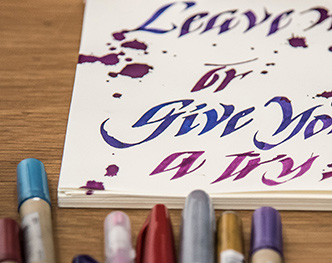 Leave
or
Give You
a try